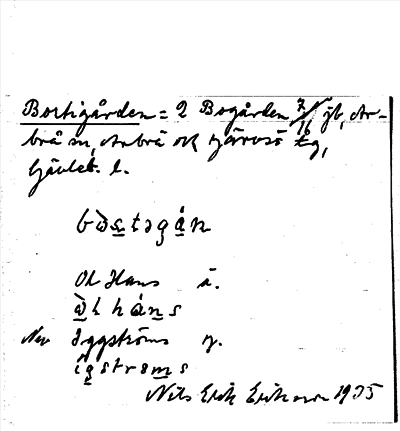 Bortigården = 2 Bogården 7/16 jb, Ar-
brå sn, Arbrå och Järvsö tg,
Gävleb. l.
bòstəgán
Ol Hans ä.
òl háns
Nev Iggströms y.
igstroms
Nils Erik Eriksson 1935